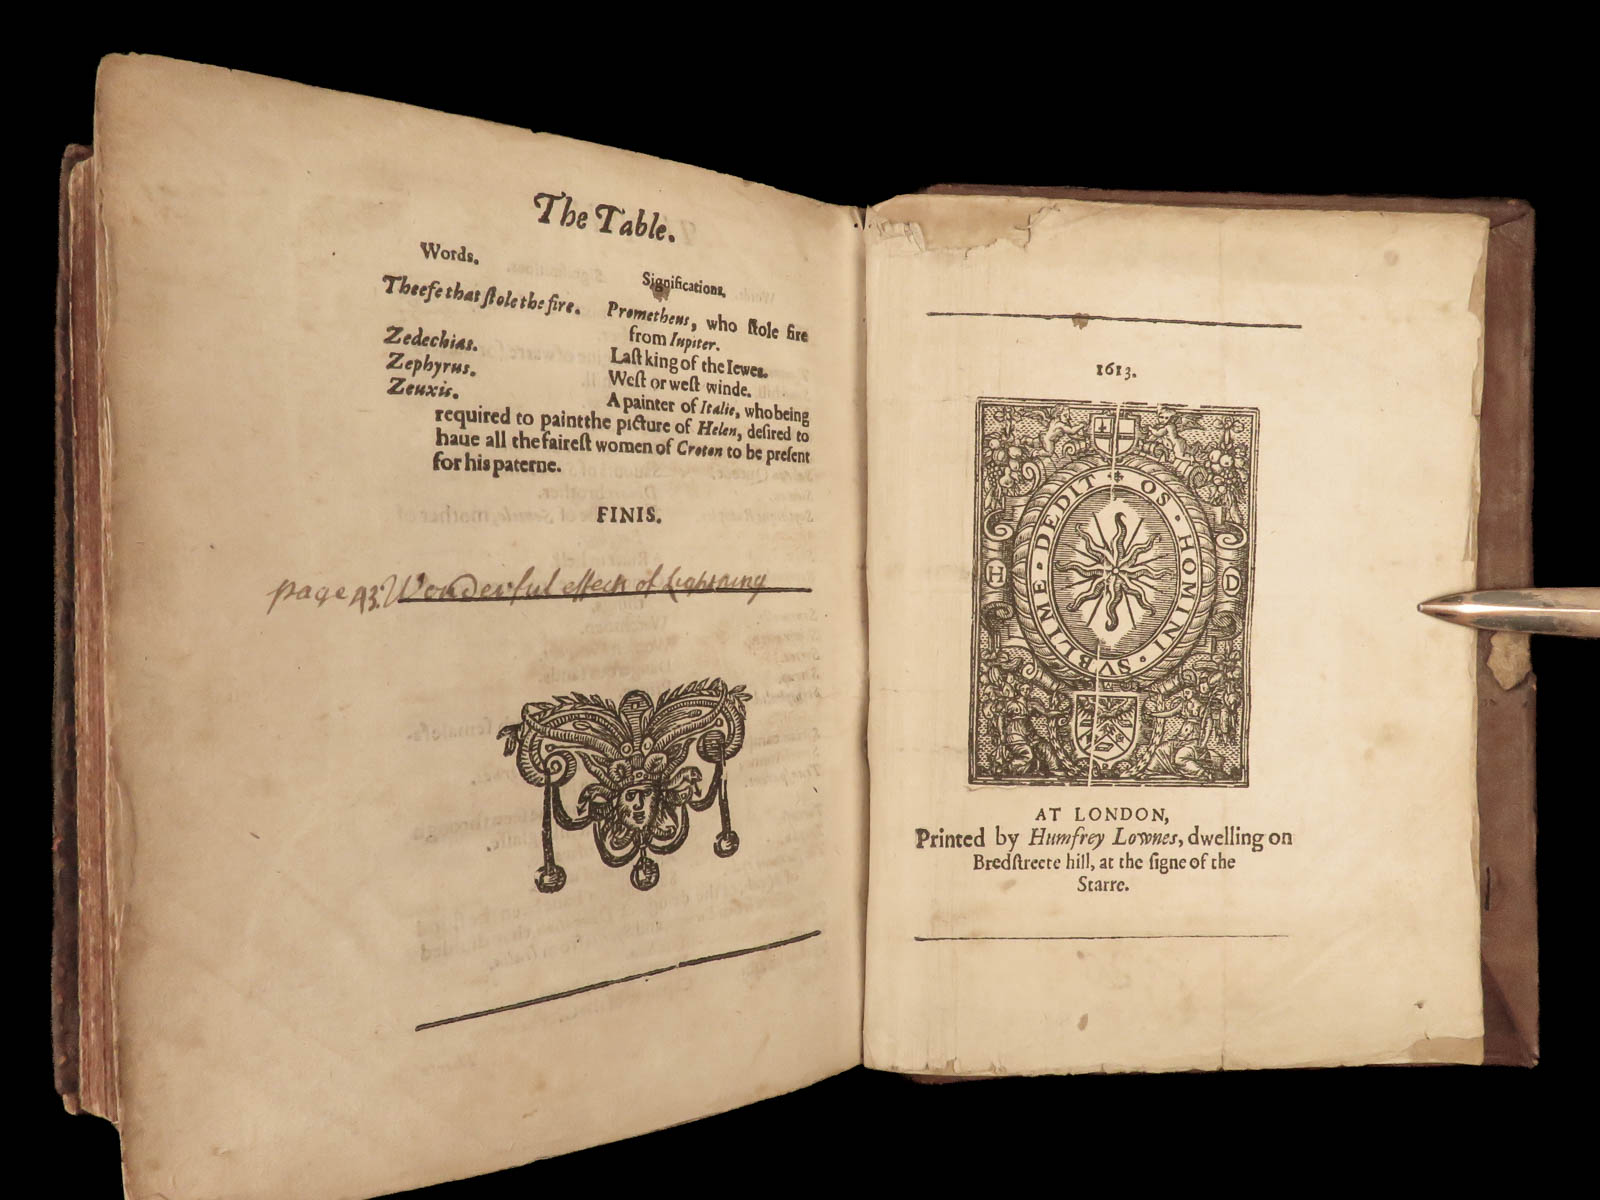 The Table.
Words.
Significations.
Theefe that ſtole the fire.
Prometheus, who ſtole fire
from Iupiter.
Zedechias.
Laſt king of the Iewes.
Zephyrus.
Weſt or weſt winde.
Zeuxis.
A painter of Italie, who being
required to paint the picture of Helen, deſired to
haue all the faireſt women of Croton to be preſent
for his paterne.
FINIS.
page 43. Wonderful effects of Lightning
1613.
OS · HOMINI · SVBLIME · DEDIT
H
D
AT LONDON,
Printed by Humfrey Lownes, dwelling on
Bredſtreete hill, at the ſigne of the
Starre.